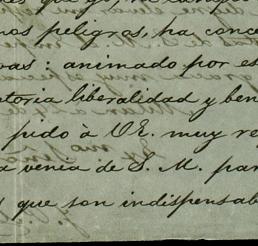 nos peligros, ha conce
as: animado por es
toria liberalidad y ben
pido à VE. muy re
a venia de S. M. par
que son indispensab